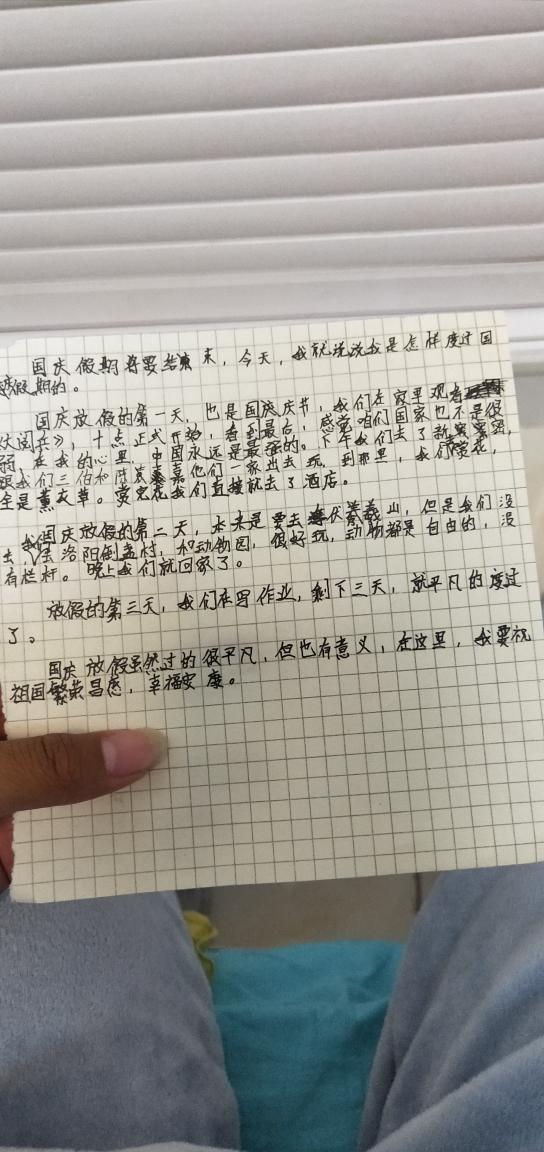 国庆假期将要结束,今天,我就说说我是怎样度过国
庆假期的。
国庆放假的第一天,也是国庆节,我们在家里观看
《大阅兵》,十点正式开始,看到最后,感觉咱们国家也不是很
弱,在我的心里,中国永远是最强的。下午我们去了
跟我们三伯和陈 嘉他们一家出去玩,到那里,我们赏花,
全是薰衣草。赏完花我们直接就去了酒店。
国庆放假的第二天,本来是要去伏羲山,但是我们没
去,去洛阳倒盏村,和动物园,很好玩,动物都是自由的,没
有栏杆。晚上我们就回家了。
放假的第三天,我们在写作业,剩下三天,就平凡的度过
了。
国庆放假虽然过的很平凡,但也有意义,在这里,我要祝
祖国繁荣昌盛,幸福安康。